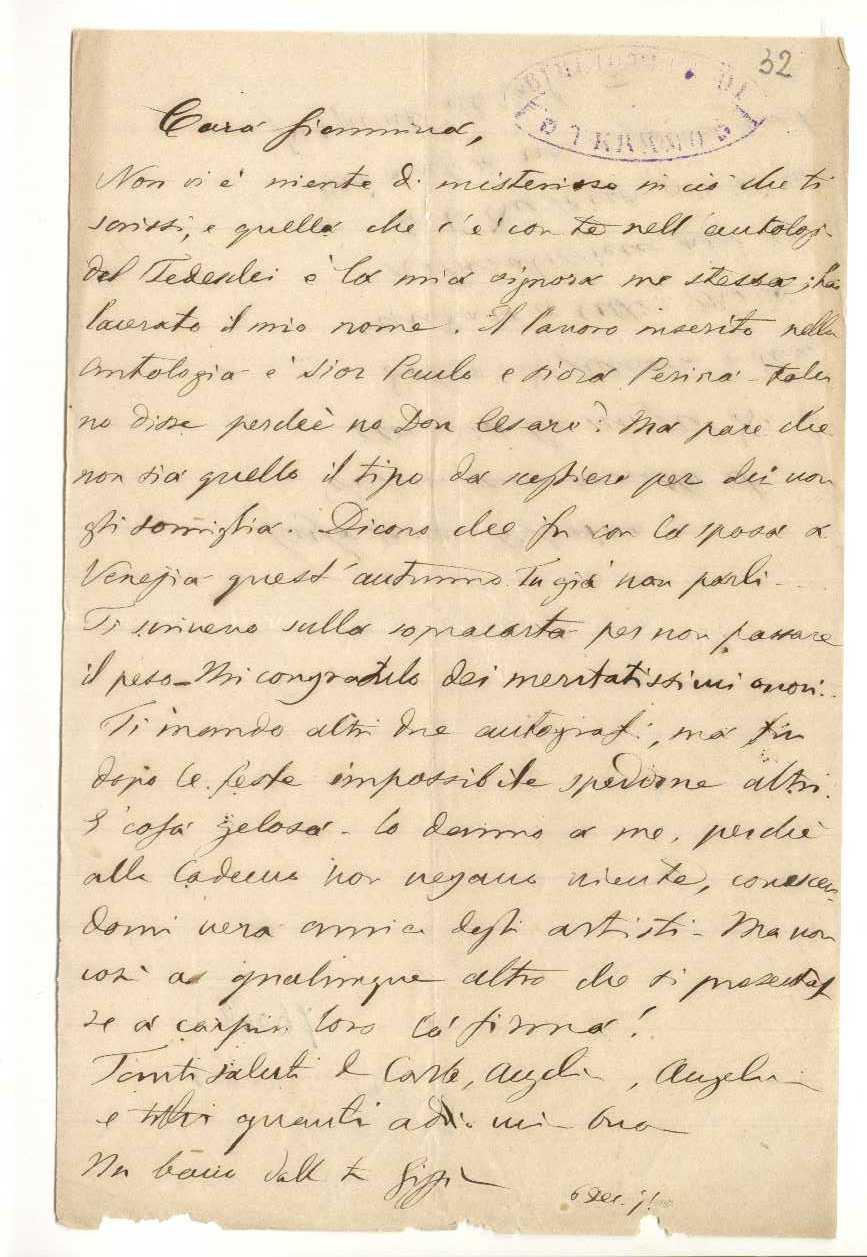 32
Cara Giannina,
Non vi è niente di misterioso in ciò che ti
scrissi, e quella che c'è con te nell'antologi-
del Tedeschi è la mia signora me stessa; hai
lacerato il mio nome. Il lavoro inserito nella
antologia è sior Paulo e siora Perina - talu
no disse perchè no Don Cesare? Ma pare che
non sia quello il tipo da scegliere per chi non
gli somiglia. Dicono che fu con la sposa a
Venezia quest'autunno. Tu già non parli -
Ti scrivevo sulla sopracarta per non passare
il peso - Mi congratulo dei meritatissimi onori.
Ti mando altri due autografi, ma fin
dopo le feste impossibile spedirne altri.
È cosa gelosa - lo danno a me, perchè
alla negano niente, conoscen-
domi vera amica degli artisti - Ma non
così a qualunque altro che si presentas
se a carpir loro la firma!
Tanti saluti a Carlo, Angelina
e quanti
Un bacio dalla tua
6 Dec.